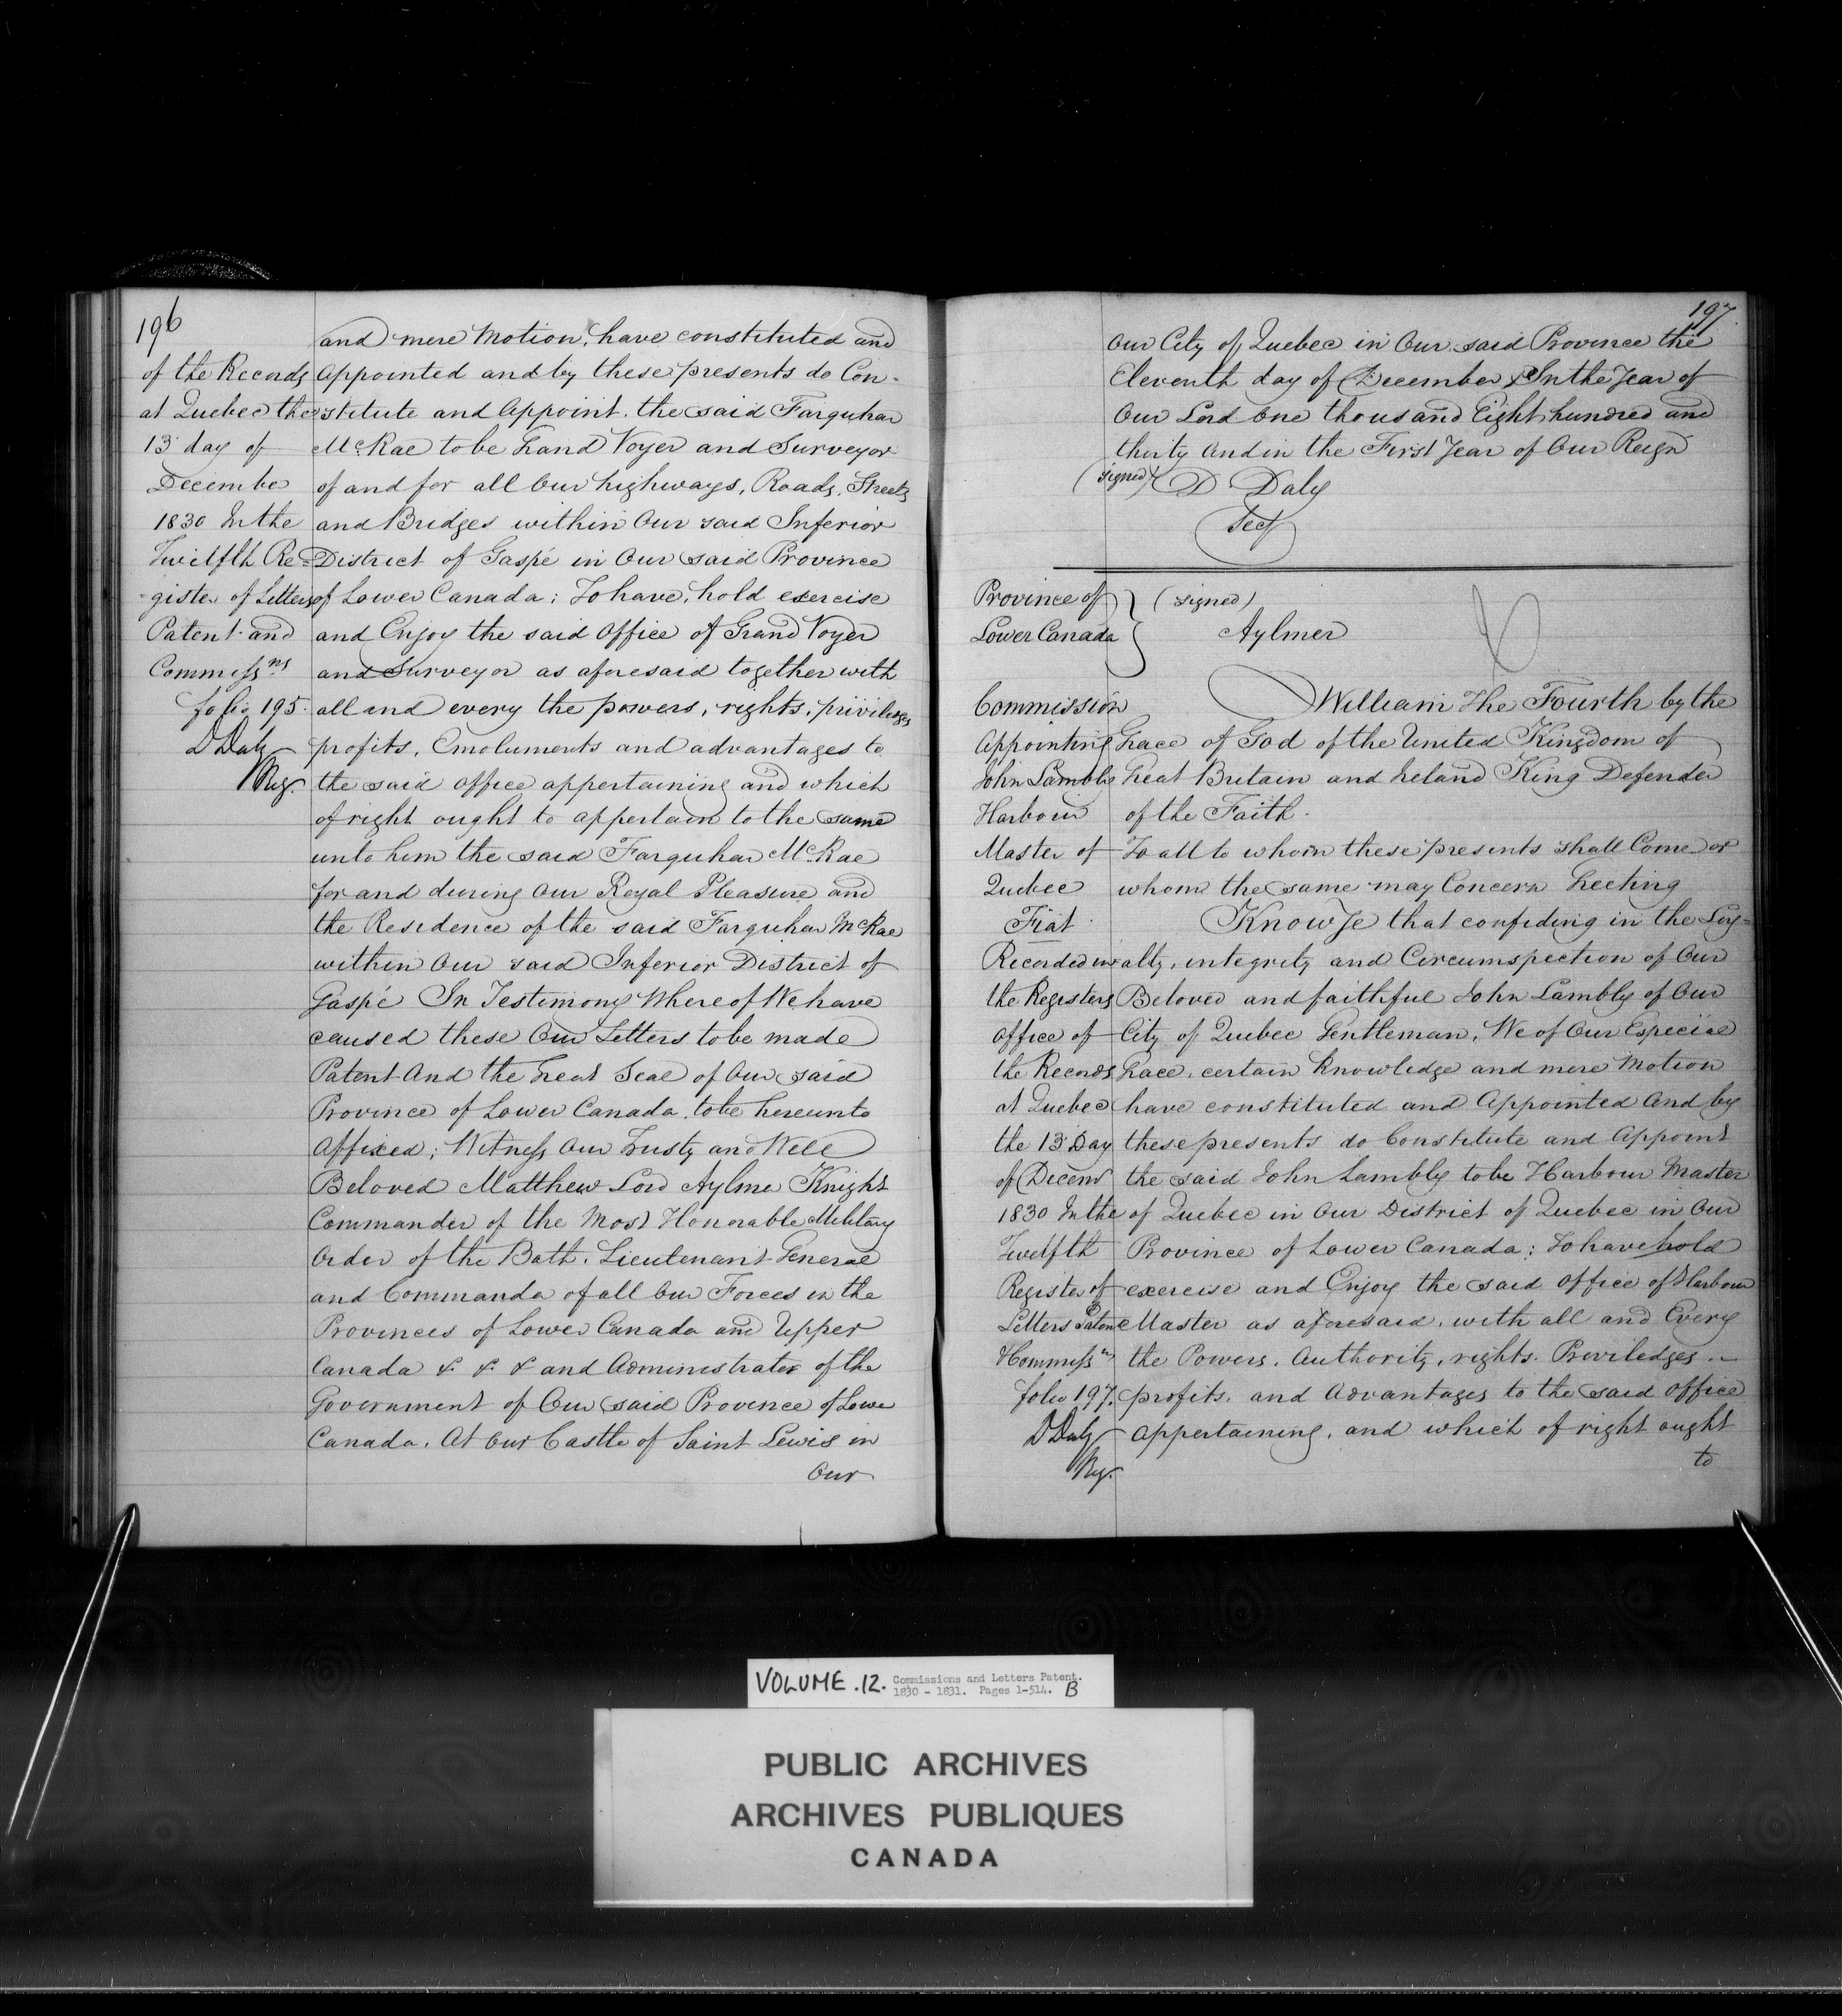 196
of the Records
at Quebec the
13 day of
December
1830 In the
Twelfth Re-
gister of Letters
Patent and
Commissns
folio 195.
D Daly
Reg.
and mere Motion, have constituted and
appointed and by these presents do Con-
stitute and Appoint, the said Farquhar
McRae to be Grand Voyer and Surveyor
of and for all Our highways, Roads, Streets
and Bridges within Our said Inferior
District of Gaspé in Our said Province
of Lower Canada; To have, hold exercise
and Enjoy the said Office of Grand Voyer
and Surveyor as aforesaid together with
all and every the powers, rights, privileges
profits, Emoluments and advantages to
the said office appertaining and which
of right ought to appertain to the same
unto him the said Farquhar McRae
for and during Our Royal Pleasure and
the Residence of the said Farquhar McRae
within Our said Inferior District of
Gaspé In Testimony Whereof We have
caused these Our Letters to be made
Patent And the Great Seal of Our said
Province of Lower Canada, to be hereunto
Affixed; Witness Our Trusty and Well
Beloved Matthew Lord Aylmer Knight
Commander of the Most Honorable Military
Order of the Bath, Lieutenant General
and Commander of all Our Forces in the
Provinces of Lower Canada and Upper
Canada &. &. & and Administrator of the
Government of Our said Province of Lower
Canada. At Our Castle of Saint Lewis in
Our
197.
Our City of Quebec in Our said Province the
Eleventh day of December In the Year of
Our Lord One thousand Eight hundred and
thirty And in the First Year of Our Reign
(signed) D Daly
Secy
Province of
Lower Canada
(signed)
Aylmer
Commission
Appointing
John Lambly
Harbour
Master of
Quebec
Fiat
Recorded in
the Registers
Office of
the Records
at Quebec
the 13 Day
of Decemr
1830 In the
Twelfth
Register of
Letters Patent
& Commissns
folio 197.
D Daly
Reg.
William The Fourth by the
Grace of God of the United Kingdom of
Great Britain and Ireland King Defender
of the Faith.
To all to whom these presents shall Come or
whom the same may Concern Greeting
Know Ye that confiding in the Loy-
alty, integrity and Circumspection of Our
Beloved and faithful John Lambly of Our
City of Quebec Gentleman, We of Our Especial
Grace, certain Knowledge and mere Motion
have constituted and Appointed And by
these presents do Constitute and Appoint
the said John Lambly to be Harbour Master
of Quebec in Our District of Quebec in Our
Province of Lower Canada; To have hold
exercise and Enjoy the said office of Harbour
Master as aforesaid, with all and Every
the Powers, Authority, rights. Priviledges.
profits, and Advantages to the said office
appertaining, and which of right ought
to
VOLUME .12. Commissions and Letters Patent.
1830 - 1831. Pages 1-514. B
PUBLIC ARCHIVES
ARCHIVES PUBLIQUES
CANADA